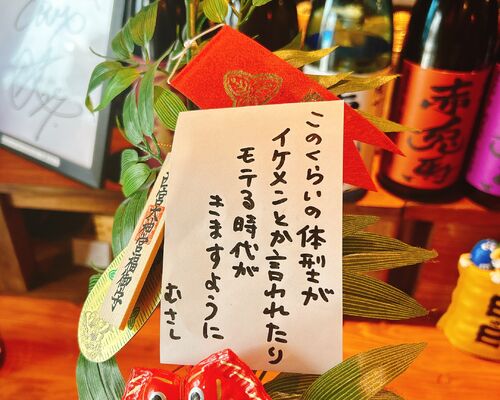 このくらいの体型が
イケメンとか言われたり
モテる時代が
きますように
むさし
赤兎馬